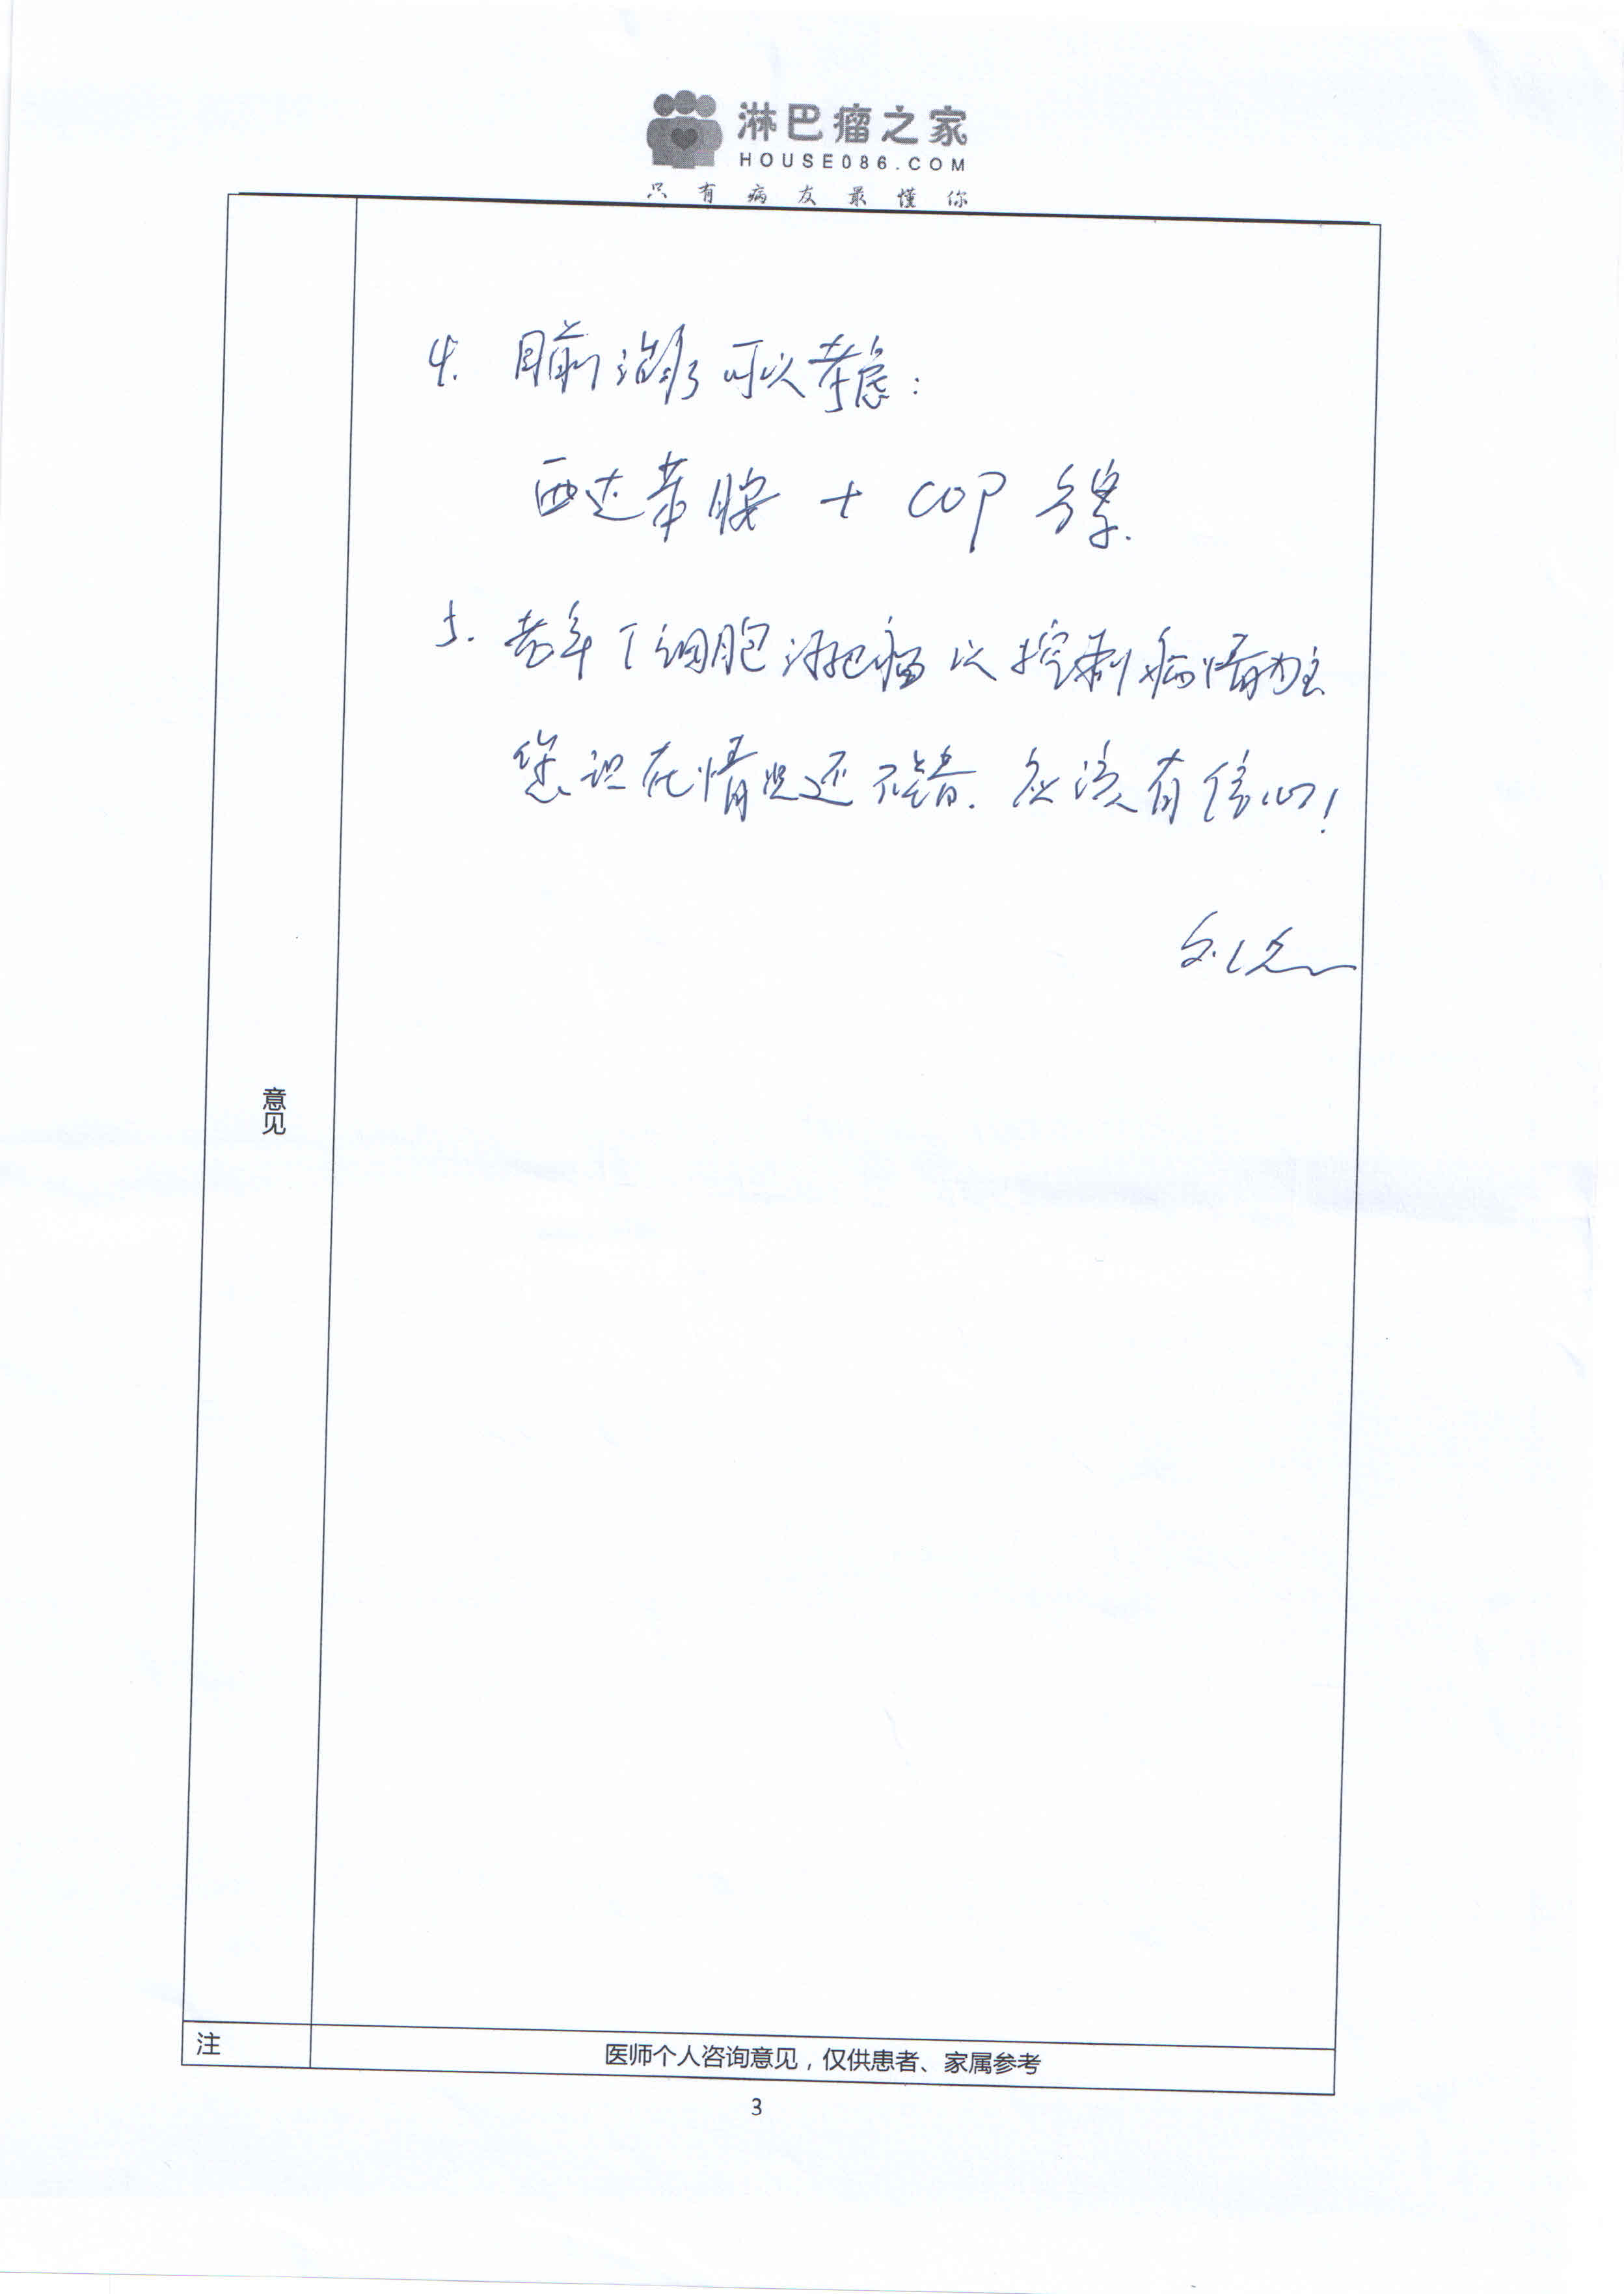 淋巴瘤之家
HOUSE086.COM
只有病友最懂你
4. 目前治疗可以考虑:
西达苯胺 + COP 方案.
5. 老年T细胞淋巴瘤以控制病情为主
您现在情况还不错. 应该有信心!
意见
注
医师个人咨询意见，仅供患者、家属参考
3